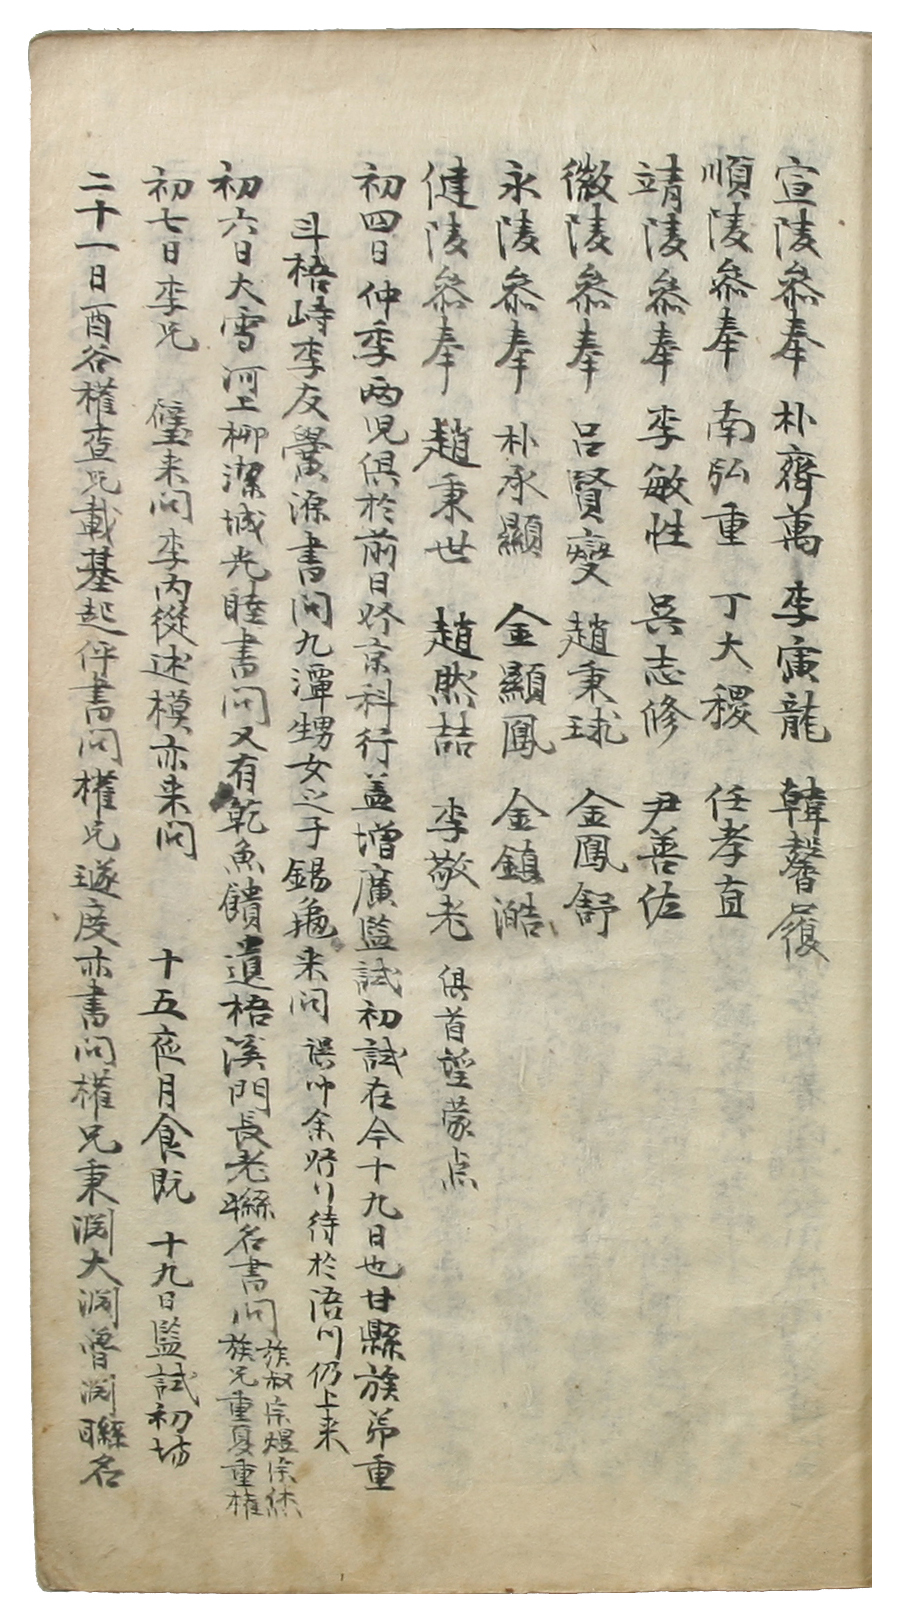 宣陵參奉 朴齊萬 李寅龍 韓馨履
順陵參奉 南弘重 丁大稷 任孝直
靖陵參奉 李敏性 吳志修 尹善佐
徽陵參奉 呂賢燮 趙秉球 金鳳舒
永陵參奉 朴承顯 金顯鳳 金鎮澔
健陵參奉 趙秉世 趙然喆 李敬老 俱首望蒙点
初四日仲季兩児俱於前日𬼀京科行盖增廣監試初試在今十九日也甘縣族弟重
斗梧峙李友黌源書問九潭甥女之子錫龜来問 待於浯川仍上来
初六日大雪河上柳潔城光睦書問又有乾魚饋遺梧溪門長老聯名書問
族叔宗煜宗
族兄重夏重權
初七日李兄 壁来問李丙從述模亦来問 十五夜月食既 十九日監試初場
二十一日酉谷權查兄載基起伻書問權兄璲度亦書問權兄秉淵大淵曾淵聯名